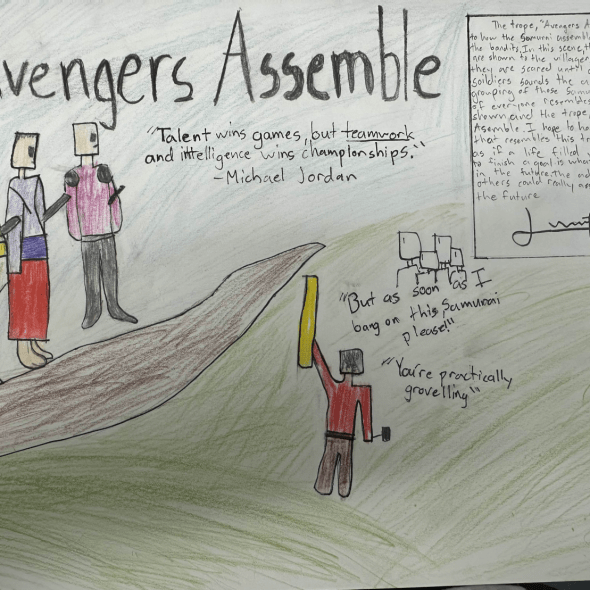 vengers Assemble
"Talent wins games, but teamwork
and intelligence wins championships."
- Michael Jordan
The trope, "Avengers A
to how the Samurai assemble
the bandits. In this scene, th
are shown to the villager
they are scared until
soildiers sounds the
grouping of those Samu
of everyone resembles
shown and the trope,
Asemble. I hope to ha
that resemble this tr
as if a life filled
to finish a goal is wha
in the future, the
others could really
the future
"But as soon as I
bang on this, Samurai
please!"
"You're practically
grovelling"